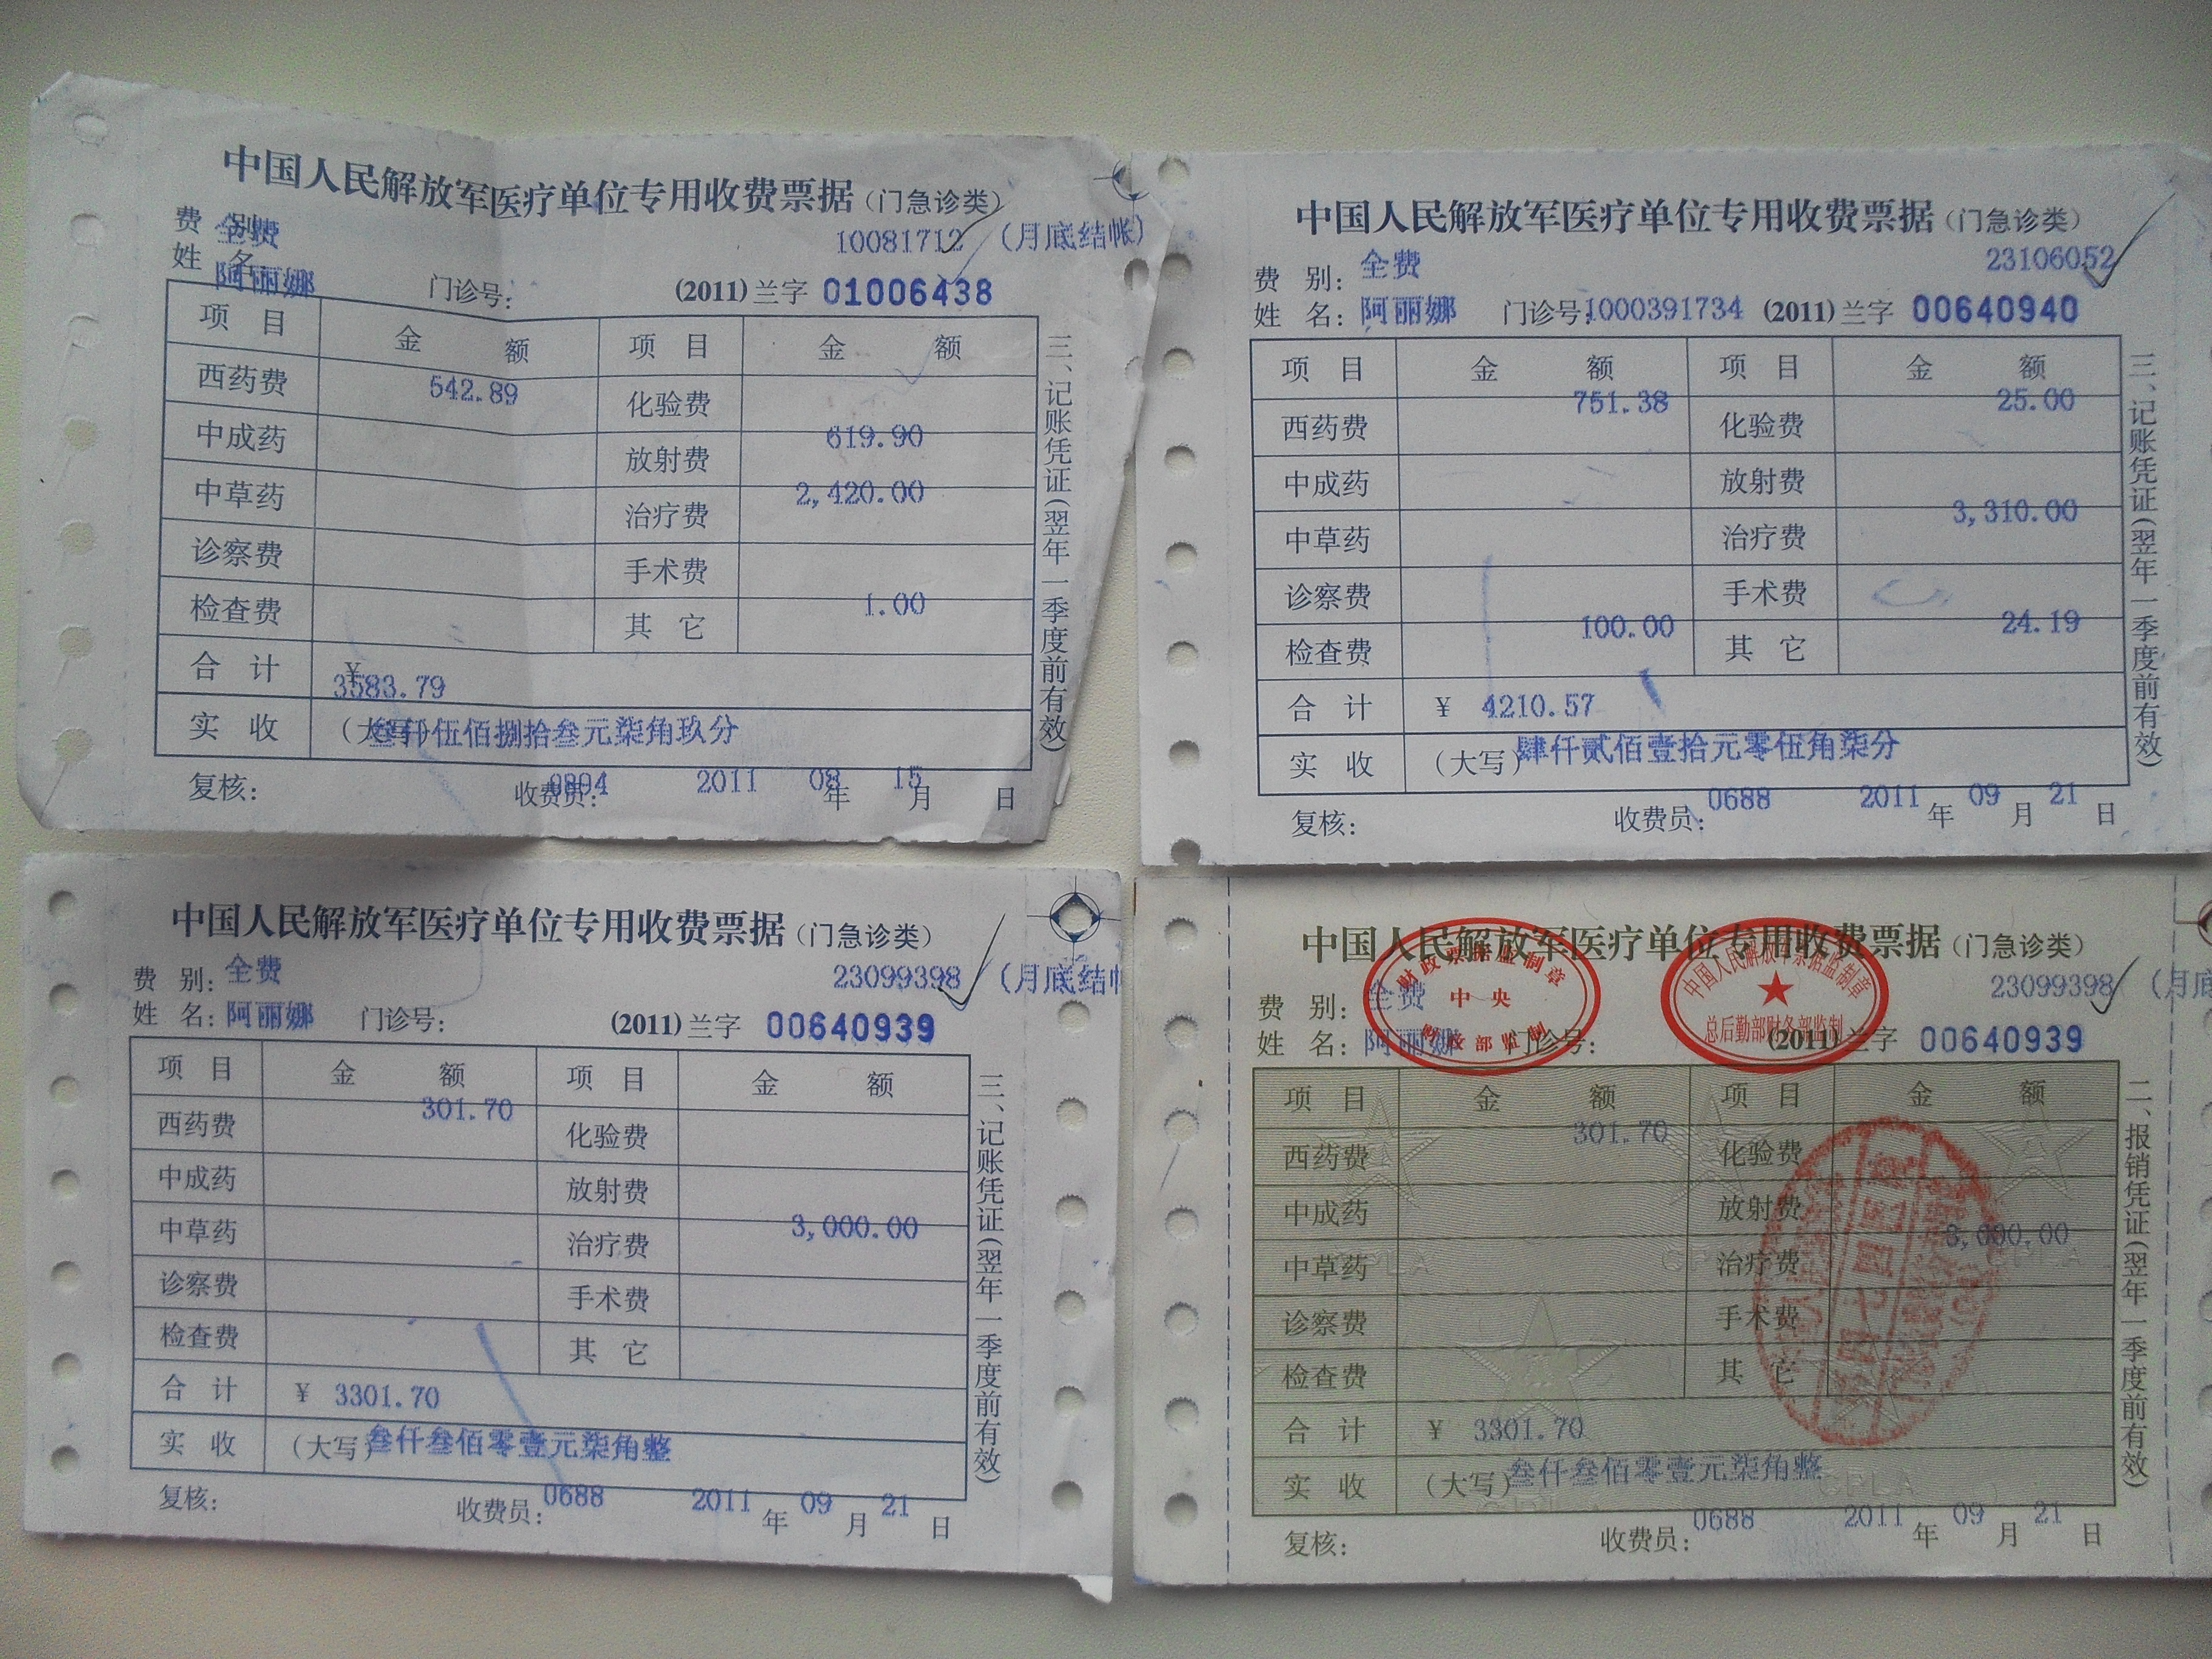 中国人民解放军医疗单位专用收费票据(门急诊类)
费 别: 全费 10081712 (月底结帐)
姓 名: 阿丽娜 门诊号: (2011)兰字 01006438
项 目 金 额 项 目 金 额
西药费 542.89 化验费
中成药 放射费 619.90
中草药 治疗费 2,420.00
诊察费 手术费
检查费 其 它 1.00
合 计 ¥ 3583.79
实 收 (大写) 叁仟伍佰捌拾叁元柒角玖分
复核: 收费员: 0804 2011 年 08 月 15 日
三、记账凭证(翌年一季度前有效)
中国人民解放军医疗单位专用收费票据(门急诊类)
23106052
费 别: 全费
姓 名: 阿丽娜 门诊号: 1000391734 (2011)兰字 00640940
项 目 金 额 项 目 金 额
西药费 751.38 化验费 25.00
中成药 放射费
中草药 治疗费 3,310.00
诊察费 手术费
检查费 100.00 其 它 24.19
合 计 ¥ 4210.57
实 收 (大写) 肆仟贰佰壹拾元零伍角柒分
复核: 收费员: 0688 2011 年 09 月 21 日
三、记账凭证(翌年一季度前有效)
中国人民解放军医疗单位专用收费票据(门急诊类)
费 别: 全费 23099398 (月底结帐
姓 名: 阿丽娜 门诊号: (2011)兰字 00640939
项 目 金 额 项 目 金 额
西药费 301.70 化验费
中成药 放射费
中草药 治疗费 3,000.00
诊察费 手术费
检查费 其 它
合 计 ¥ 3301.70
实 收 (大写) 叁仟叁佰零壹元柒角整
复核: 收费员: 0688 2011 年 09 月 21 日
三、记账凭证(翌年一季度前有效)
中国人民解放军医疗单位专用收费票据(门急诊类)
财政票据监制章
中央
财政部监制
中国人民解放军票据监制章
总后勤部财务部监制
费 别: 全费 23099398 (月底
姓 名: 阿丽娜 门诊号: (2011)兰字 00640939
项 目 金 额 项 目 金 额
西药费 301.70 化验费
中成药 放射费
中草药 治疗费 3,000.00
诊察费 手术费
检查费 其 它
合 计 ¥ 3301.70
实 收 (大写) 叁仟叁佰零壹元柒角整
CPLA
复核: 收费员: 0688 2011 年 09 月 21 日
二、报销凭证(翌年一季度前有效)